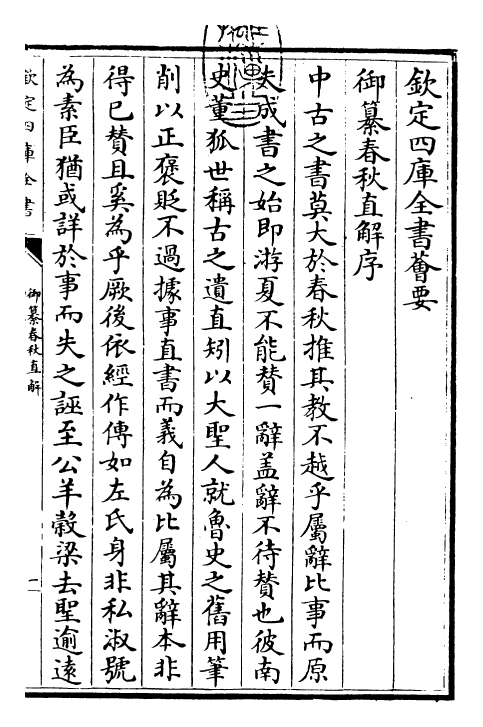 欽定四庫全書薈要
御纂春秋直解序
中古之書莫大於春秋推其教不越乎屬辭比事而原
夫成書之始即游夏不能賛一辭盖辭不待賛也彼南
史董狐世稱古之遺直矧以大聖人就魯史之舊用筆
削以正褒貶不過據事直書而義自為比屬其辭本非
得已賛且奚為乎厥後依經作傳如左氏身非私淑號
為素臣猶或詳於事而失之誣至公羊榖梁去聖逾遠
欽定四庫全書
御纂春秋直解
一